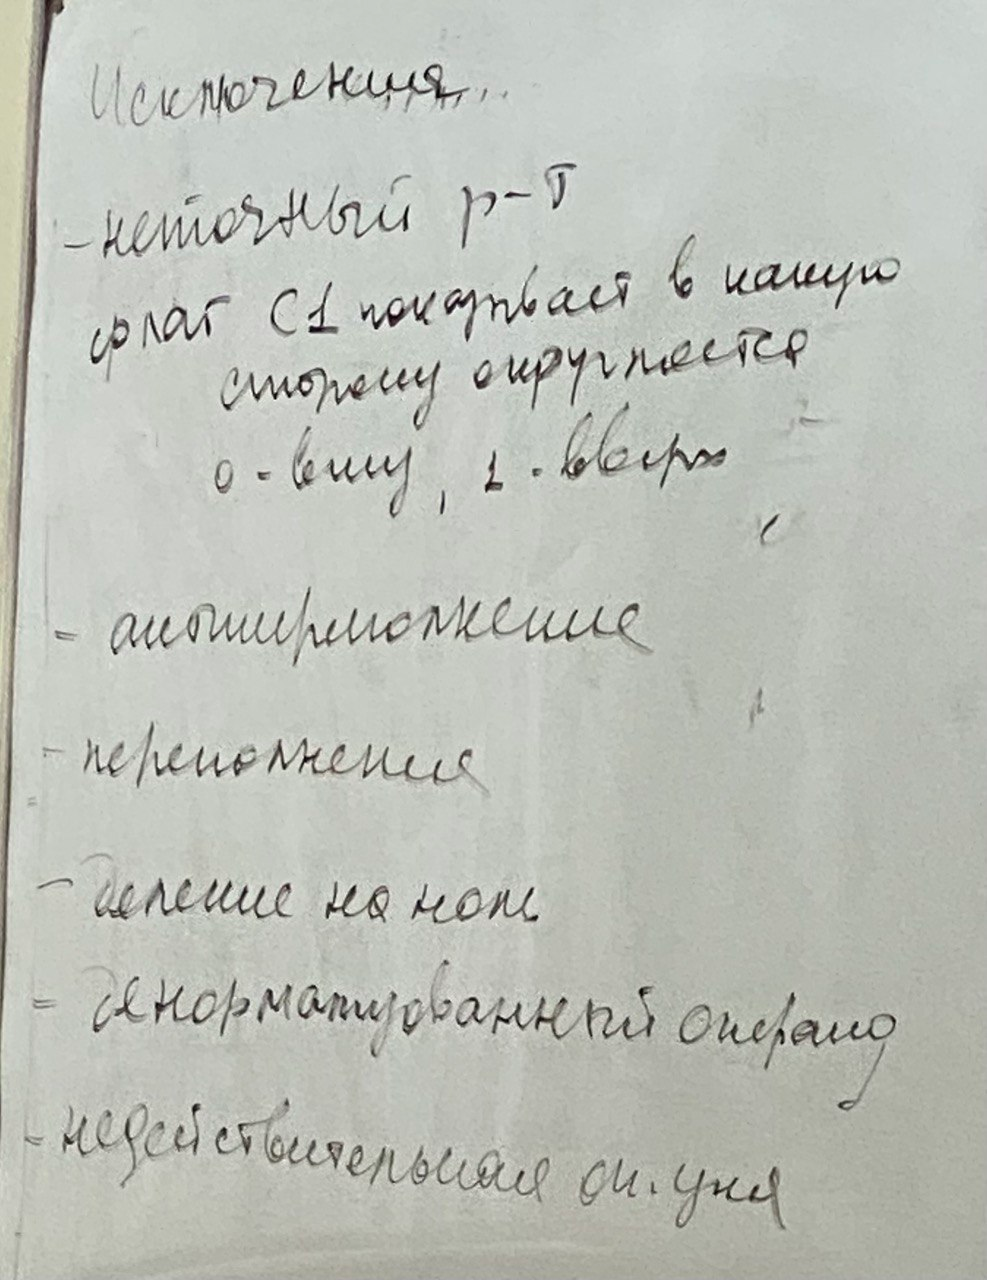 Исключения...
- неточный р-т
флаг C1 показывает в какую
сторону округляется
0 - вниз, 1 - вверх
- антипереполнение
- переполнения
- деление на ноль
- денормализованный операнд
- недействительная оп.